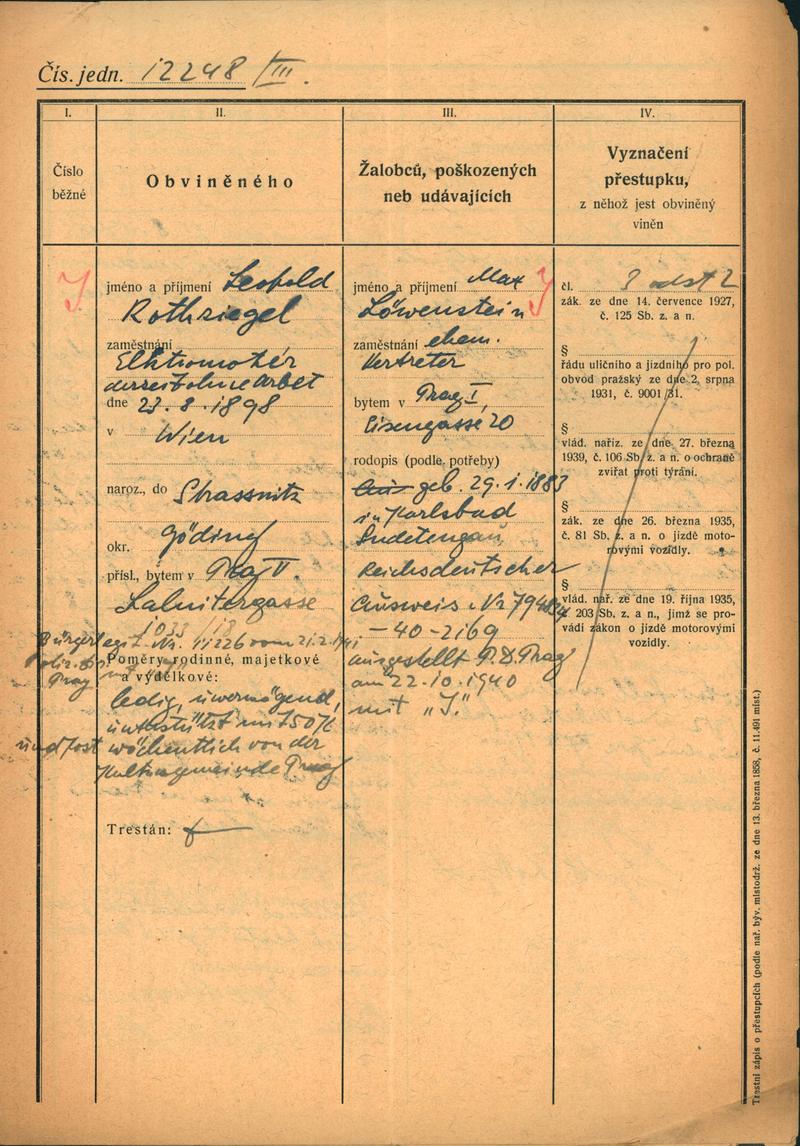 Čís. jedn. 12248/III.
I.
Číslo
běžné
II.
Obviněného
III.
Žalobců, poškozených
neb udávajících
IV.
Vyznačení
přestupku,
z něhož jest obviněný
viněn
J
jméno a příjmení Leopold
Rothriegel
zaměstnání
Elktromotér
derzeit ohne Arbet
dne 27.8.1898
v Wien
naroz., do Strassnitz
okr. Göding
přísl., bytem v Prag V.
Salnitergasse
1033/18
Bürgerlegit. Nr. 11226 vom 21.2.1941
Poliz.
Prag
Poměry rodinné, majetkové
a výdělkové:
ledig, unvermögend,
unterstützt mit 50 K
und Kost wöchentlich von der
Kultusgemeinde Prag
Trestán:
jméno a příjmení Max J
Löwenstein
zaměstnání chem.
Vertreter
bytem v Prag I,
Eisengasse 20
rodopis (podle potřeby)
geb. 29.1.1883
in Karlsbad
Sudetengau
Reichsdeutscher
Ausweis Nr
-40-2169
ausgestellt P.D. Prag
am 22.10.1940
mit „J."
čl. 3 odst 2
zák. ze dne 14. července 1927,
č. 125 Sb. z. a n.
§
řádu uličního a jízdního pro pol.
obvod pražský ze dne 2. srpna
1931, č. 9001/31.
§
vlád. naříz. ze dne 27. března
1939, č. 106 Sb. z. a n. o ochraně
zvířat proti týrání.
§
zák. ze dne 26. března 1935,
č. 81 Sb. z. a n. o jízdě moto-
rovými vozidly.
§
vlád. nař. ze dne 19. října 1935,
č. 203 Sb. z. a n., jímž se pro-
vádí zákon o jízdě motorovými
vozidly.
Trestní zápis o přestupcích (podle nař. býv. místodrž. ze dne 13. března 1858, č. 11.491 míst.)